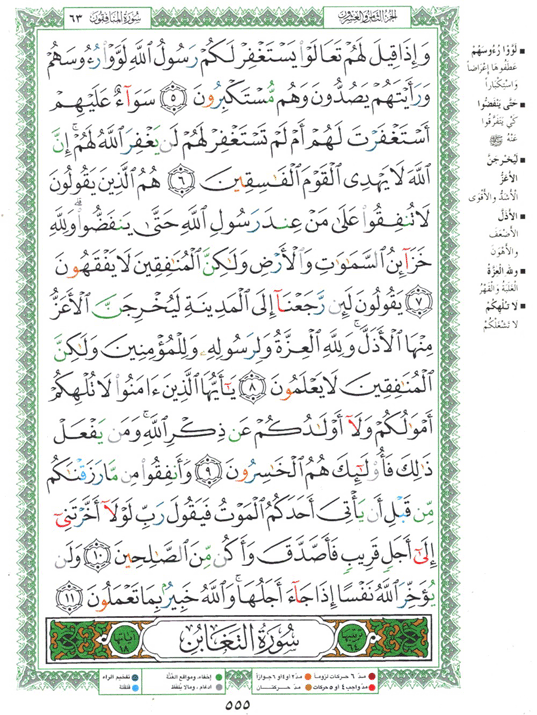 سُورَةُ المُنَافِقُونَ ٦٣
الجُزْءُ الثَّامِنُ وَالعِشْرُونَ
وَإِذَا قِيلَ لَهُمْ تَعَالَوْا۟ يَسْتَغْفِرْ لَكُمْ رَسُولُ ٱللَّهِ لَوَّوْا۟ رُءُوسَهُمْ
وَرَأَيْتَهُمْ يَصُدُّونَ وَهُم مُّسْتَكْبِرُونَ ٥ سَوَآءٌ عَلَيْهِمْ
أَسْتَغْفَرْتَ لَهُمْ أَمْ لَمْ تَسْتَغْفِرْ لَهُمْ لَن يَغْفِرَ ٱللَّهُ لَهُمْ ۚ إِنَّ
ٱللَّهَ لَا يَهْدِى ٱلْقَوْمَ ٱلْفَـٰسِقِينَ ٦ هُمُ ٱلَّذِينَ يَقُولُونَ
لَا تُنفِقُوا۟ عَلَىٰ مَنْ عِندَ رَسُولِ ٱللَّهِ حَتَّىٰ يَنفَضُّوا۟ ۗ وَلِلَّهِ
خَزَآئِنُ ٱلسَّمَـٰوَٰتِ وَٱلْأَرْضِ وَلَـٰكِنَّ ٱلْمُنَـٰفِقِينَ لَا يَفْقَهُونَ
٧ يَقُولُونَ لَئِن رَّجَعْنَآ إِلَى ٱلْمَدِينَةِ لَيُخْرِجَنَّ ٱلْأَعَزُّ
مِنْهَا ٱلْأَذَلَّ ۚ وَلِلَّهِ ٱلْعِزَّةُ وَلِرَسُولِهِۦ وَلِلْمُؤْمِنِينَ وَلَـٰكِنَّ
ٱلْمُنَـٰفِقِينَ لَا يَعْلَمُونَ ٨ يَـٰٓأَيُّهَا ٱلَّذِينَ ءَامَنُوا۟ لَا تُلْهِكُمْ
أَمْوَٰلُكُمْ وَلَآ أَوْلَـٰدُكُمْ عَن ذِكْرِ ٱللَّهِ ۚ وَمَن يَفْعَلْ
ذَٰلِكَ فَأُو۟لَـٰٓئِكَ هُمُ ٱلْخَـٰسِرُونَ ٩ وَأَنفِقُوا۟ مِن مَّا رَزَقْنَـٰكُم
مِّن قَبْلِ أَن يَأْتِىَ أَحَدَكُمُ ٱلْمَوْتُ فَيَقُولَ رَبِّ لَوْلَآ أَخَّرْتَنِىٓ
إِلَىٰٓ أَجَلٍ قَرِيبٍ فَأَصَّدَّقَ وَأَكُن مِّنَ ٱلصَّـٰلِحِينَ ١٠ وَلَن
يُؤَخِّرَ ٱللَّهُ نَفْسًا إِذَا جَآءَ أَجَلُهَا ۚ وَٱللَّهُ خَبِيرٌۢ بِمَا تَعْمَلُونَ ١١
ترتيبها ٦٤
سُورَةُ التَّغَابُنِ
آياتها ١٨
■ لَوَّوْا رُءُوسَهُمْ
عَطَفُوهَا إِعْرَاضاً
وَاسْتِكْبَاراً
■ حَتَّى يَنْفَضُّوا
كَيْ يَتَفَرَّقُوا
عَنْهُ ﷺ
■ لَيُخْرِجَنَّ
الأَعَزُّ
الأَشَدُّ وَالأَقْوَى
■ الأَذَلَّ
الأَضْعَفَ
وَالأَهْوَنَ
■ وَلِلَّهِ العِزَّةُ
الغَلَبَةُ وَالقَهْرُ
■ لَا تُلْهِكُمْ
لَا تَشْغَلْكُمْ
مدّ ٦ حركات لزوماً
مدّ ٢ أو ٤ أو ٦ جوازاً
إخفاء، ومواقع الغُنَّة
تفخيم الراء
مدّ واجب ٤ أو ٥ حركات
مدّ حركتان
ادغام، وما لا يُلفَظ
قلقلة
٥٥٥